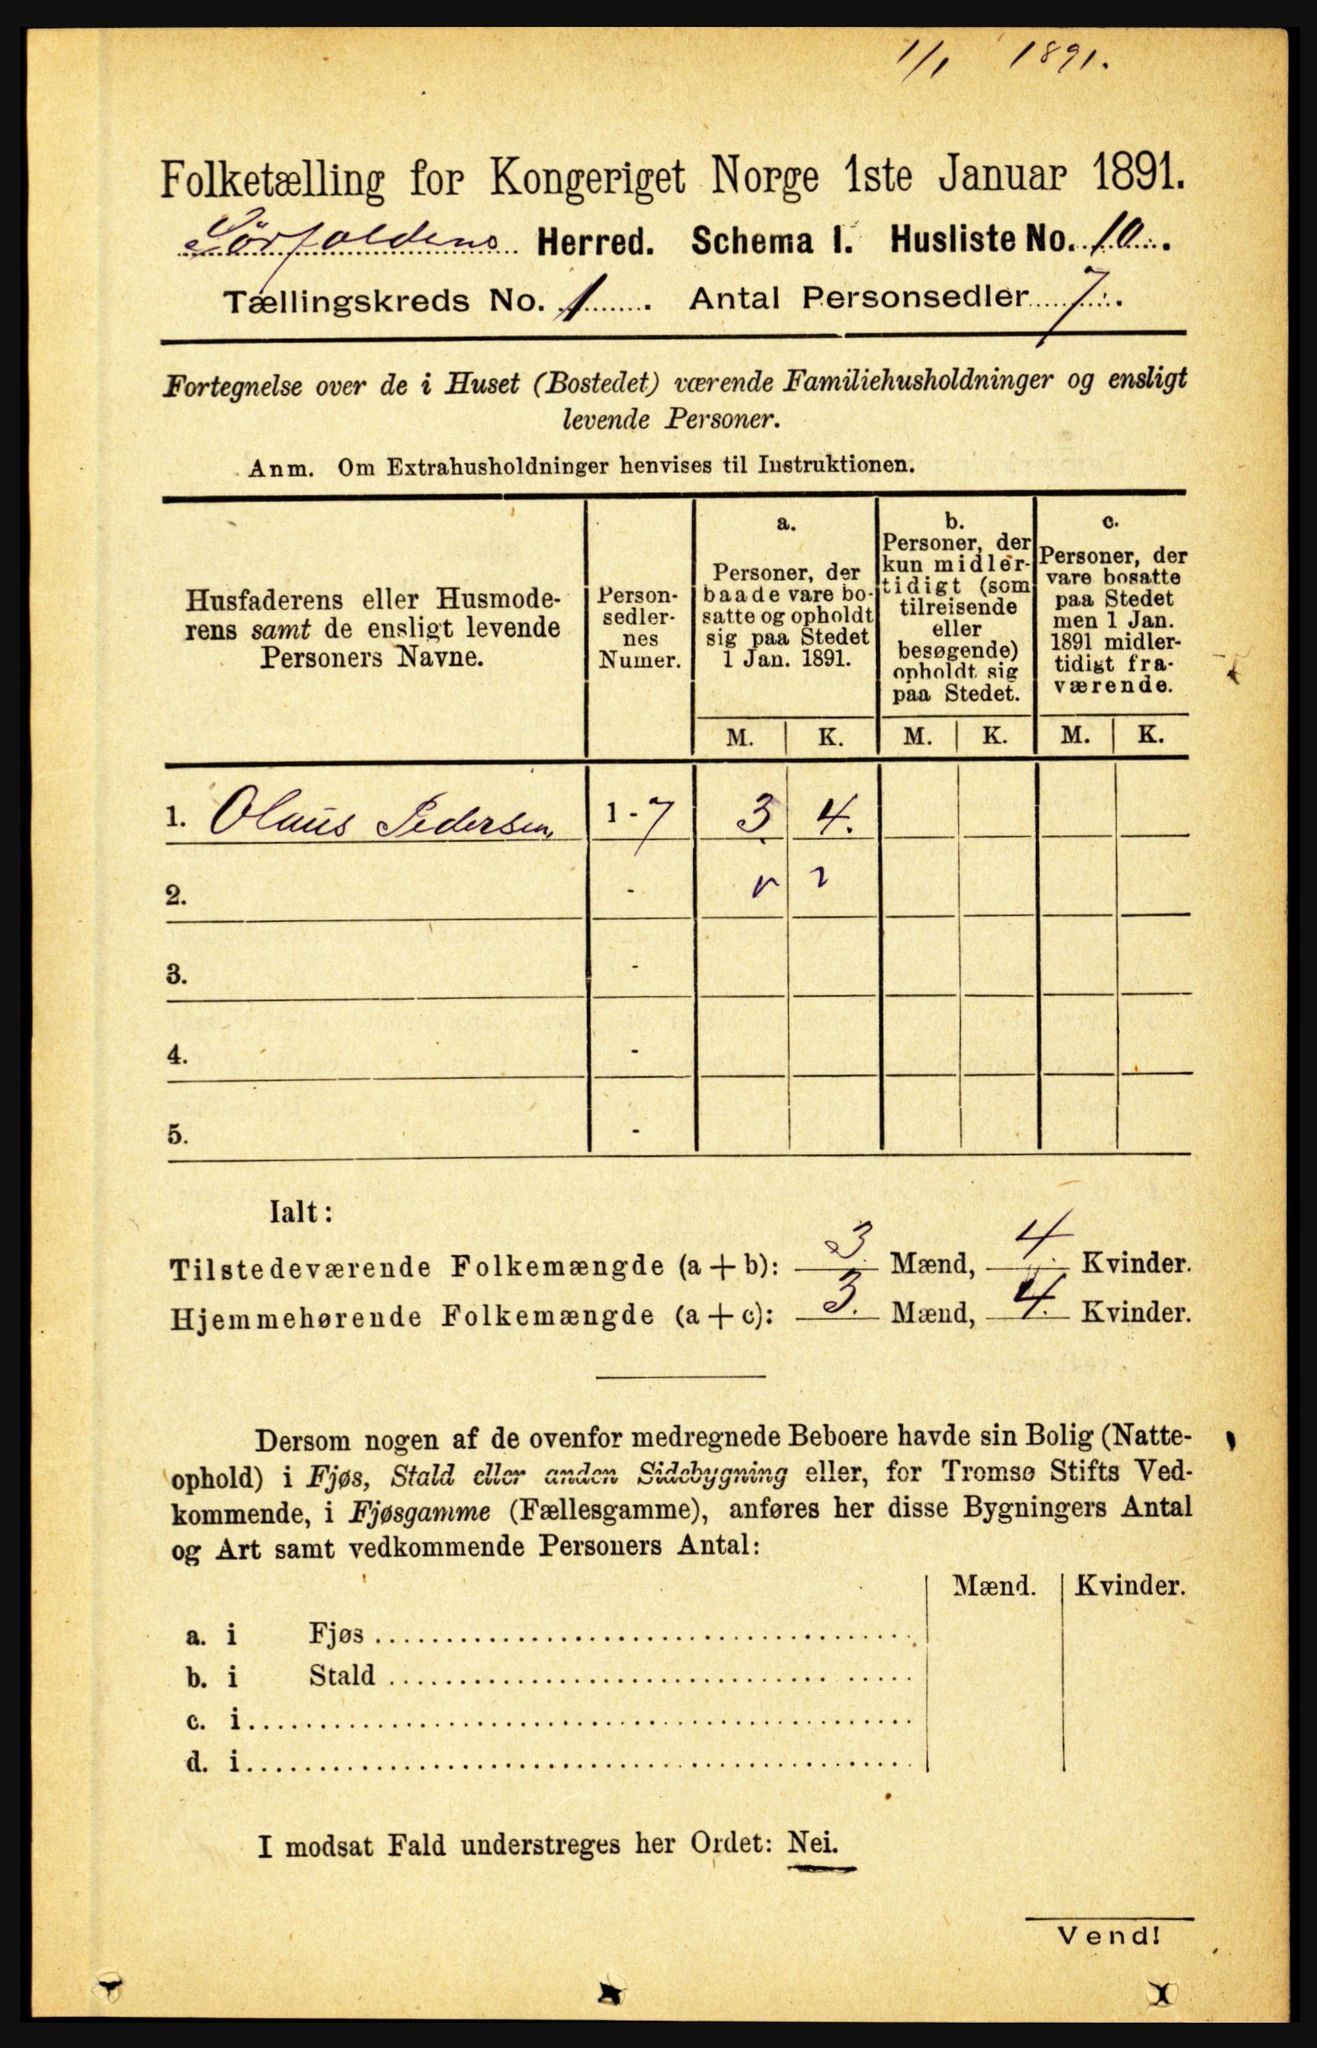 1/1 1891.
Folketælling for Kongeriget Norge 1ste Januar 1891.
Sörfoldens Herred. Schema I. Husliste No. 10.
Tællingskreds No. 1. Antal Personsedler 7.
Fortegnelse over de i Huset (Bostedet) værende Familiehusholdninger og ensligt
levende Personer.
Anm. Om Extrahusholdninger henvises til Instruktionen.
Husfaderens eller Husmode-
rens samt de ensligt levende
Personers Navne.
Person-
sedler-
nes
Numer.
a.
Personer, der
baade vare bo-
satte og opholdt
sig paa Stedet
1 Jan. 1891.
b.
Personer, der
kun midler-
tidigt (som
tilreisende
eller
besøgende)
opholdt sig
paa Stedet.
c.
Personer, der
vare bosatte
paa Stedet
men 1 Jan.
1891 midler-
tidigt fra-
værende.
M. K. M. K. M. K.
1. Olaus Pedersen 1 - 7 3 4.
2. -
3. -
4. -
5. -
Ialt:
Tilstedeværende Folkemængde (a + b): 3. Mænd, 4. Kvinder.
Hjemmehørende Folkemængde (a + c): 3. Mænd, 4. Kvinder.
Dersom nogen af de ovenfor medregnede Beboere havde sin Bolig (Natte-
ophold) i Fjøs, Stald eller anden Sidebygning eller, for Tromsø Stifts Ved-
kommende, i Fjøsgamme (Fællesgamme), anføres her disse Bygningers Antal
og Art samt vedkommende Personers Antal:
Mænd. Kvinder.
a. i Fjøs
b. i Stald
c. i
d. i
I modsat Fald understreges her Ordet: Nei.
Vend!